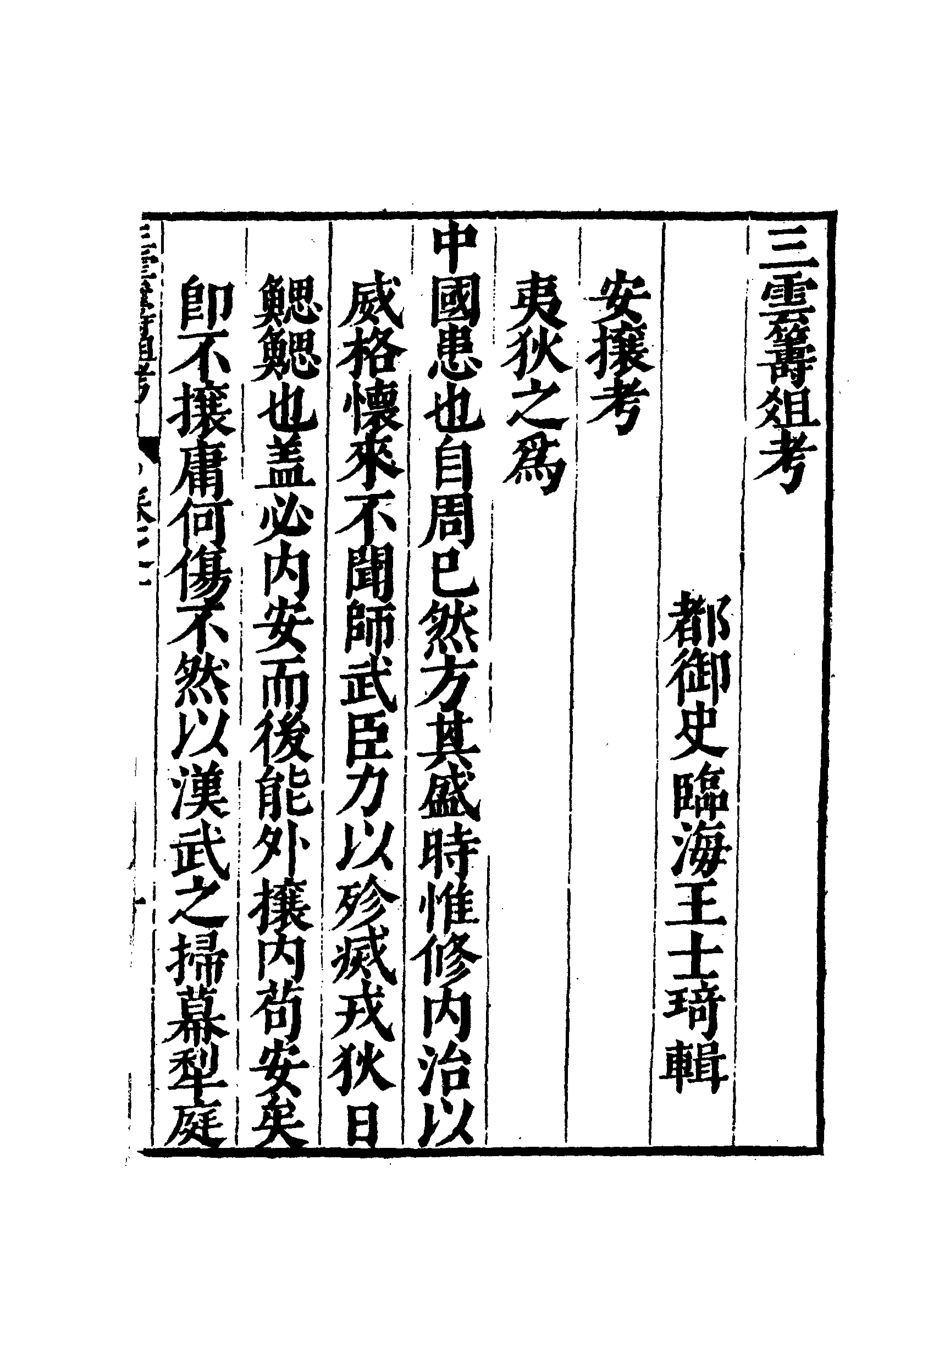 三雲籌俎考
都御史臨海王士琦輯
安攘考
夷狄之爲
中國患也自周已然方其盛時惟修内治以
威格懷來不聞師武臣力以殄滅戎狄日
鰓鰓也盖必内安而後能外攘内苟安矣
卽不攘庸何傷不然以漢武之掃幕犁庭
三雲籌俎考
卷之一